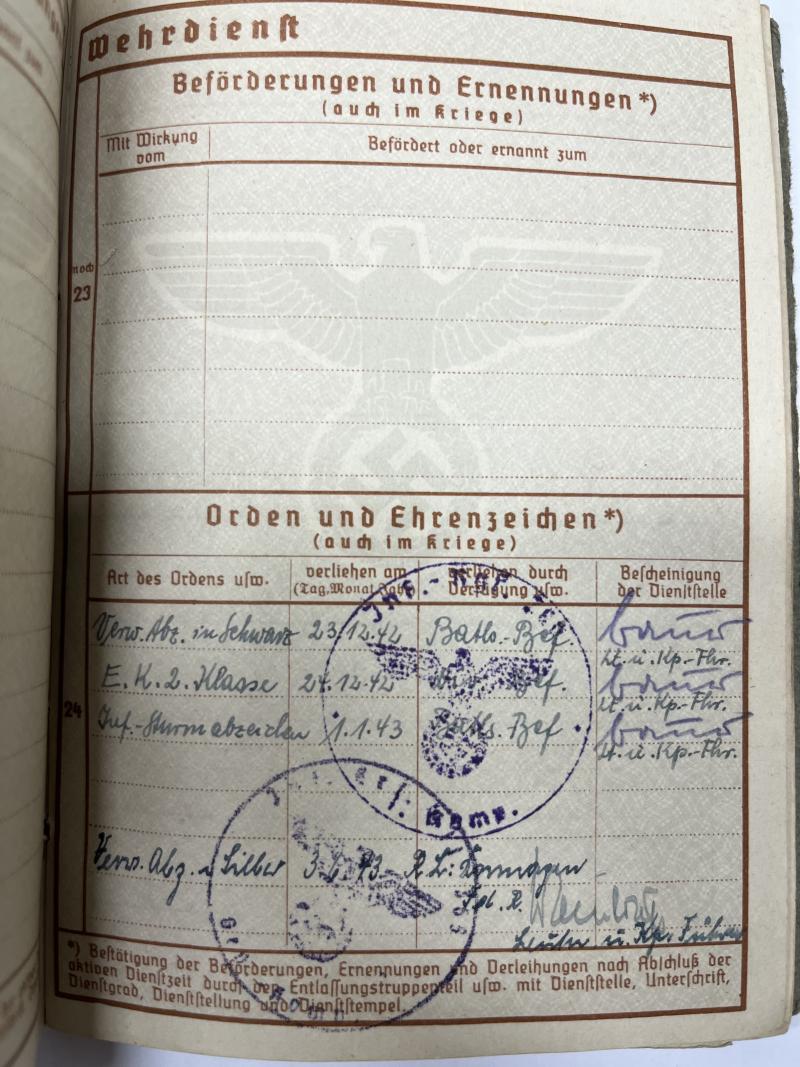 Wehrdienst
Beförderungen und Ernennungen*)
(auch im Kriege)
Mit Wirkung vom
Befördert oder ernannt zum
noch
23
Orden und Ehrenzeichen*)
(auch im Kriege)
Art des Ordens usw.
verliehen am (Tag, Monat, Jahr)
verliehen durch Verfügung usw.
Bescheinigung der Dienststelle
24
Verw. Abz. in Schwarz 23.12.42 Batls.-Bef.
Lt. u. Kp.-Fhr.
E. K. 2. Klasse 24.12.42 Bef.
Lt. u. Kp.-Fhr.
Inf.-Sturmabzeichen 1.1.43 Batls.-Bef
Lt. u. Kp.-Fhr.
Verw. Abz. Silber 43
Leutn. u. Kp. Führer
*) Bestätigung der Beförderungen, Ernennungen und Verleihungen nach Abschluß der
aktiven Dienstzeit durch den Entlassungstruppenteil usw. mit Dienststelle, Unterschrift,
Dienstgrad, Dienststellung und Dienststempel.